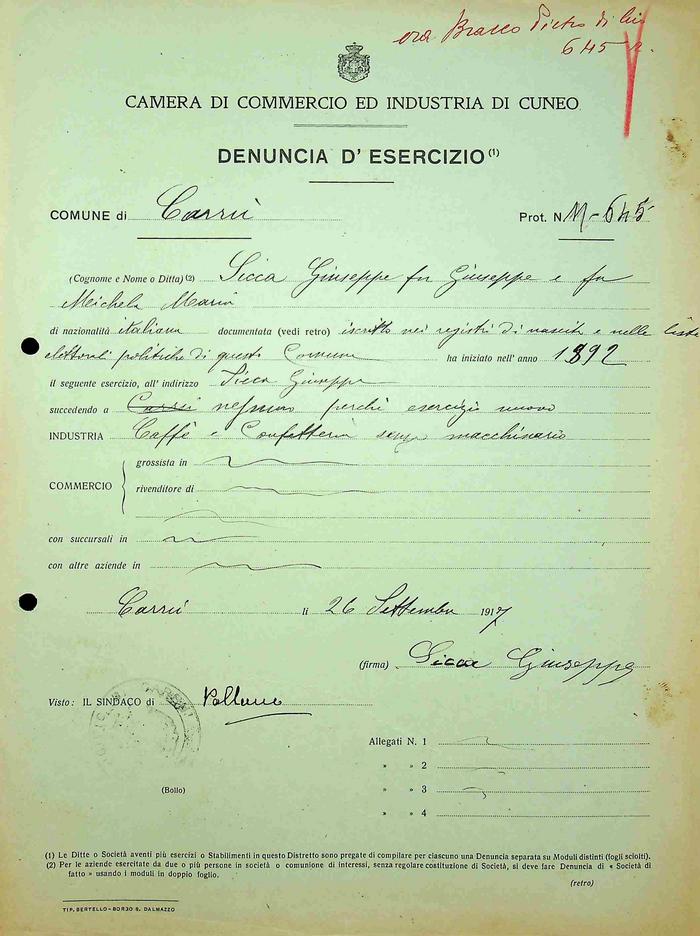 ora Brasco Pietro di
645 r.
CAMERA DI COMMERCIO ED INDUSTRIA DI CUNEO
DENUNCIA D' ESERCIZIO (1)
COMUNE di Carrù Prot. N. M-645
(Cognome e Nome o Ditta) (2) Sicca Giuseppe fu Giuseppe e fu
Michela Maria
di nazionalità italiana documentata (vedi retro) iscritto nei registri di nascita e nelle liste
elettorali politiche di questo Comune ha iniziato nell' anno 1892
il seguente esercizio, all' indirizzo Sicca Giuseppe
succedendo a Carrù nessuno perchè esercizio nuovo
INDUSTRIA Caffè e Confetteria senza macchinario
COMMERCIO
grossista in
rivenditore di
con succursali in
con altre aziende in
Carrù li 26 Settembre 1917
(firma) Sicca Giuseppe
Visto: IL SINDACO di
Allegati N. 1
» » 2
(Bollo) » » 3
» » 4
(1) Le Ditte o Società aventi più esercizi o Stabilimenti in questo Distretto sono pregate di compilare per ciascuno una Denuncia separata su Moduli distinti (fogli sciolti).
(2) Per le aziende esercitate da due o più persone in società o comunione di interessi, senza regolare costituzione di Società, si deve fare Denuncia di « Società di
fatto » usando i moduli in doppio foglio.
(retro)
TIP. BERTELLO - BORGO S. DALMAZZO